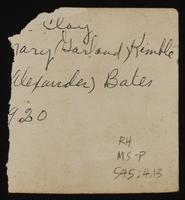 Clay
Mary Garland Kimble
(Alexander) Bates
920
RH
MS-P
545:4.13